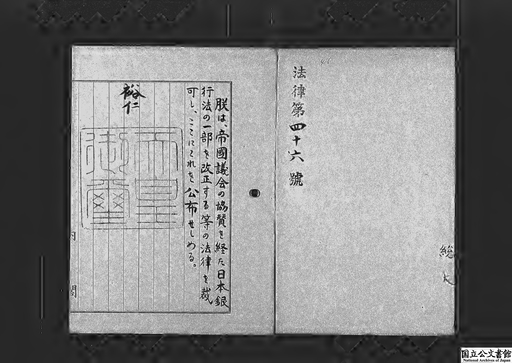 法律第四十六號
朕は、帝國議会の協賛を経た日本銀
行法の一部を改正する等の法律を裁
可し、ここにこれを公布せしめる。
裕仁
天皇
御璽
内閣
国立公文書館
National Archives of Japan